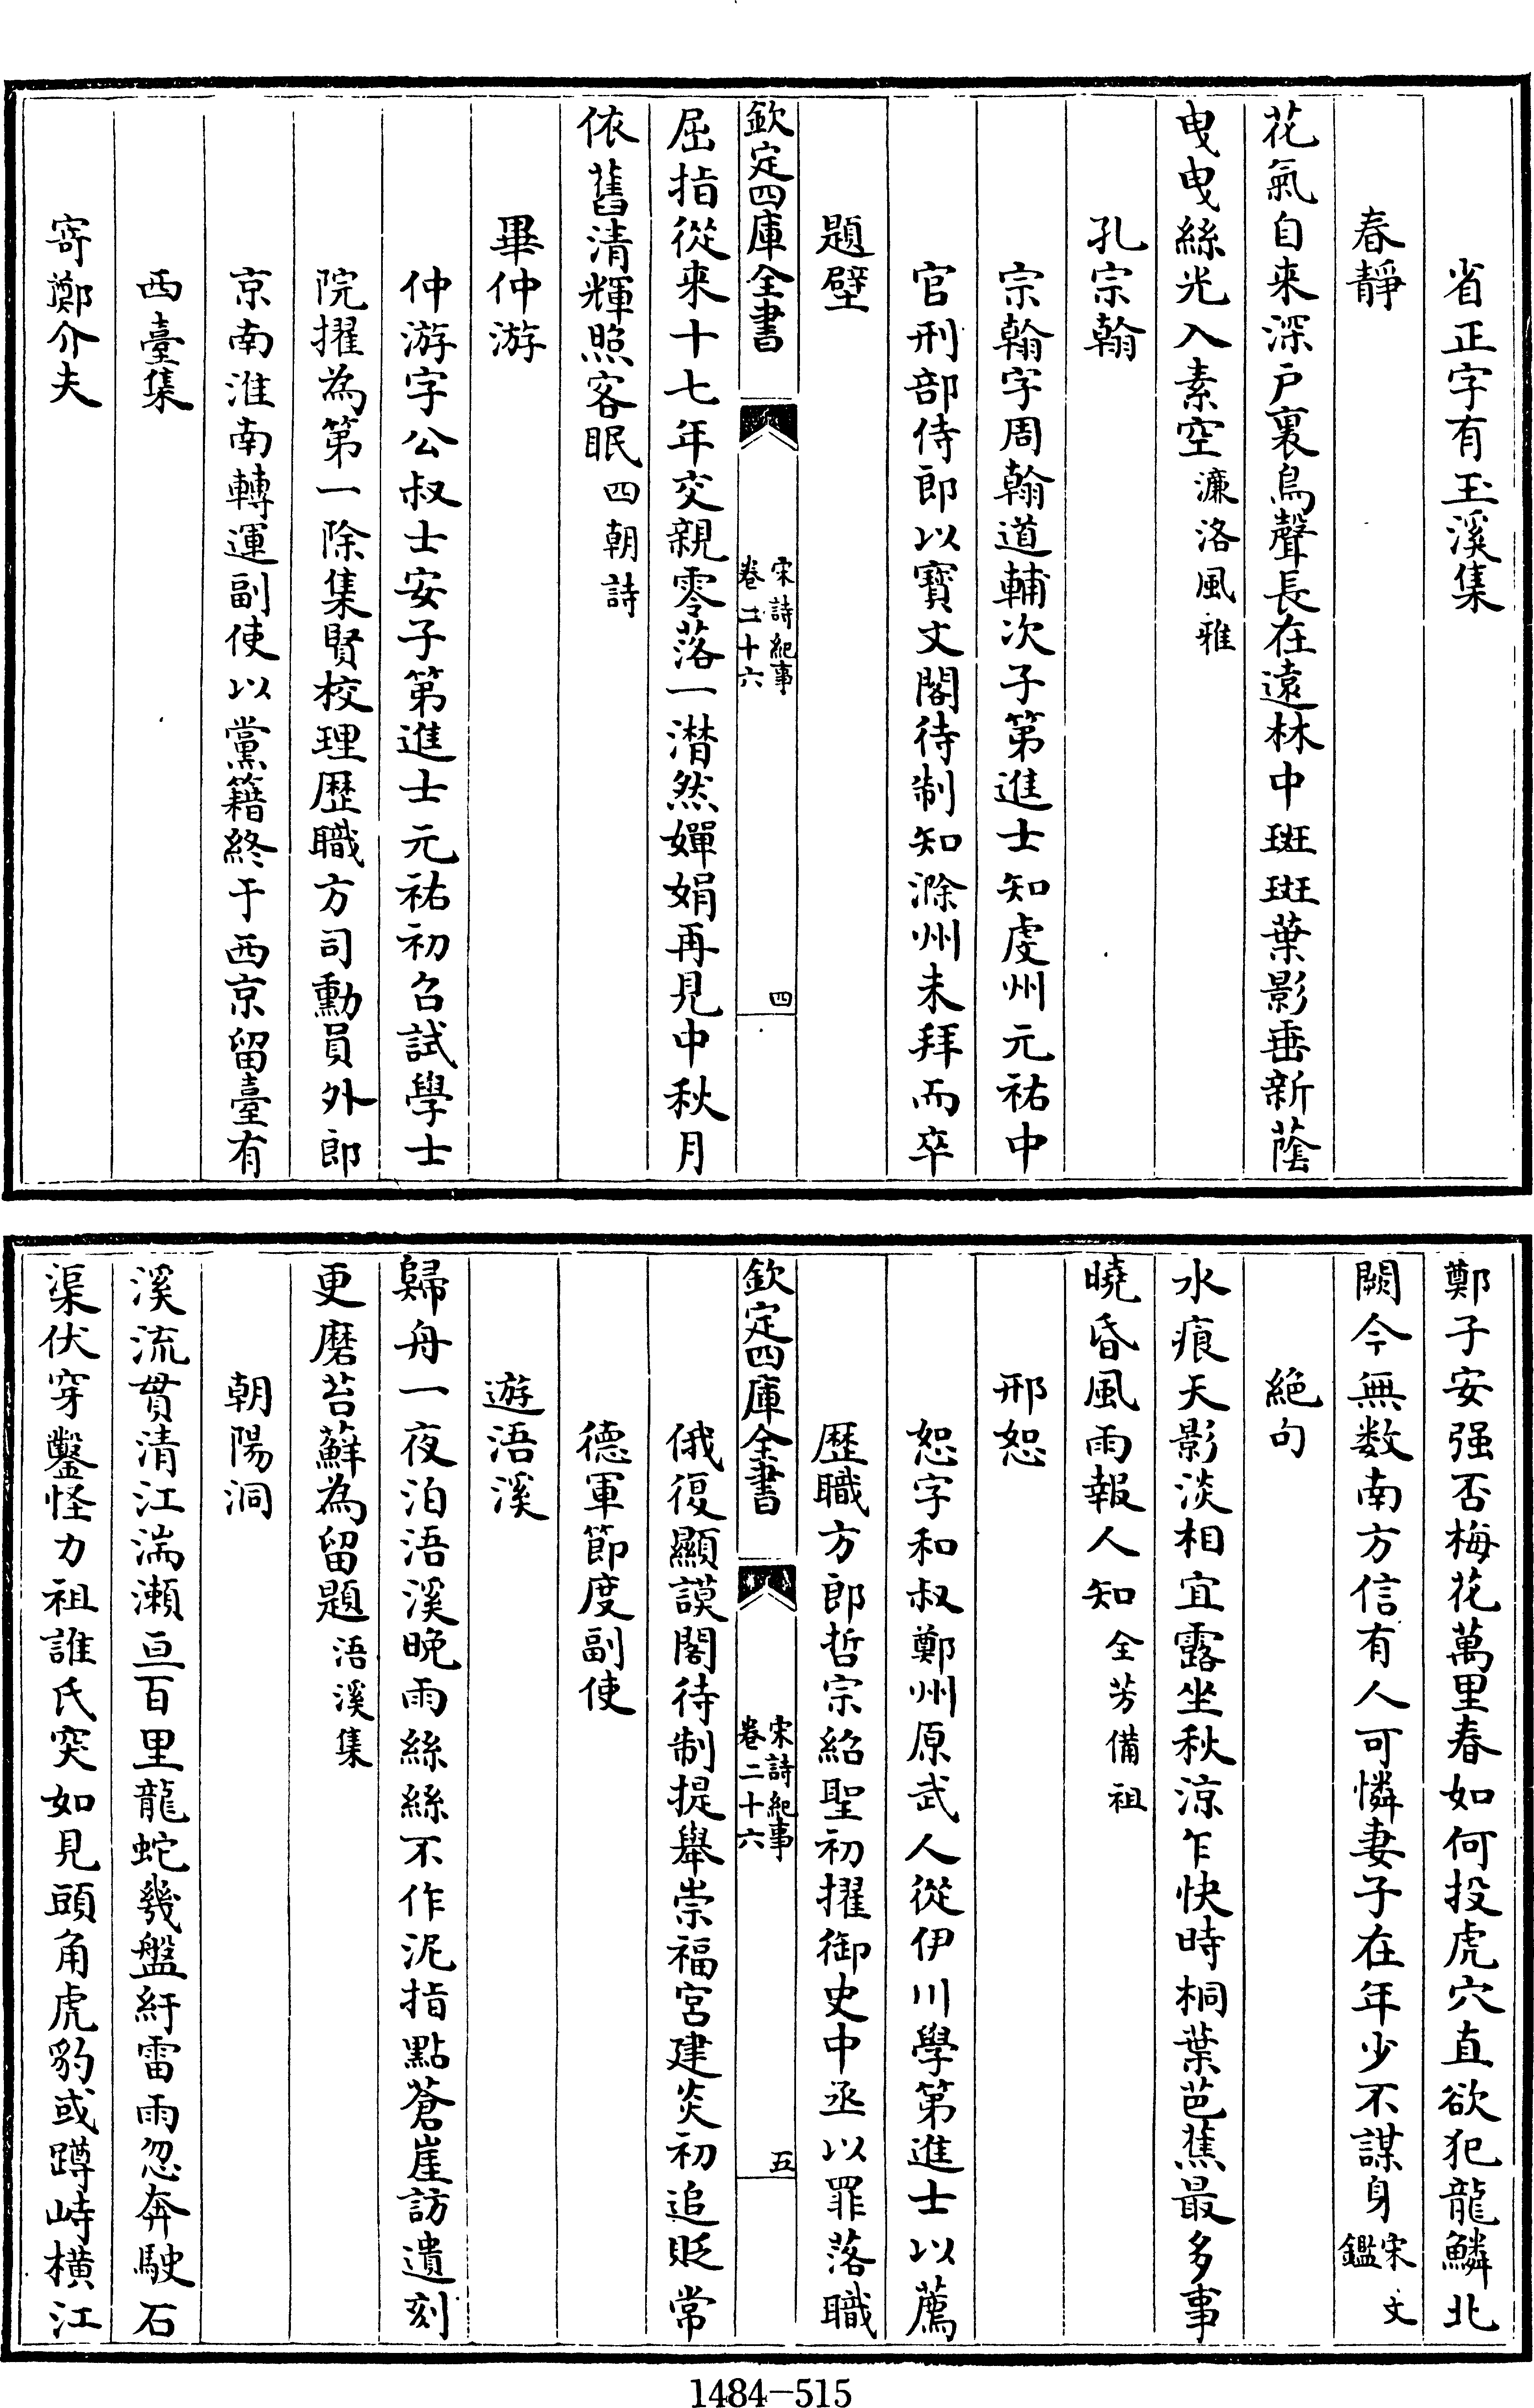 省正字有玉溪集
春靜
花氣自来深戶裏鳥聲長在逺林中斑斑葉影垂新蔭
曳曳絲光入素空濂洛風雅
孔宗翰
宗翰字周翰道輔次子第進士知䖍州元祐中
官刑部侍郎以寶文閣待制知滁州未拜而卒
題壁
欽定四庫全書
宋詩紀事
卷二十六
四
屈指從来十七年交親零落一潸然嬋娟再見中秋月
依舊清輝照客眠四朝詩
畢仲游
仲游字公叔士安子第進士元祐初召試學士
院擢為第一除集賢校理歴職方司勳員外郎
京南淮南轉運副使以黨籍終于西京留臺有
西臺集
寄鄭介夫
鄭子安强否梅花萬里春如何投虎穴直欲犯龍鱗北
闕今無数南方信有人可憐妻子在年少不謀身宋文鑑
絕句
水痕天影淡相宜露坐秋涼乍快時桐葉芭蕉最多事
曉昏風雨報人知全芳備祖
邢恕
恕字和叔鄭州原武人從伊川學第進士以薦
歴職方郎哲宗紹聖初擢御史中丞以罪落職
欽定四庫全書
宋詩紀事
卷二十六
五
俄復顯謨閣待制提舉崇福宮建炎初追貶常
德軍節度副使
遊浯溪
歸舟一夜泊浯溪晚雨絲絲不作泥指點蒼崖訪遺刻
更磨苔蘚為留題浯溪集
朝陽洞
溪流貫清江湍瀬亘百里龍蛇幾盤紆雷雨忽奔駛石
渠伏穿鑿怪力祖誰氏突如見頭角虎豹或蹲峙横江
1484-515